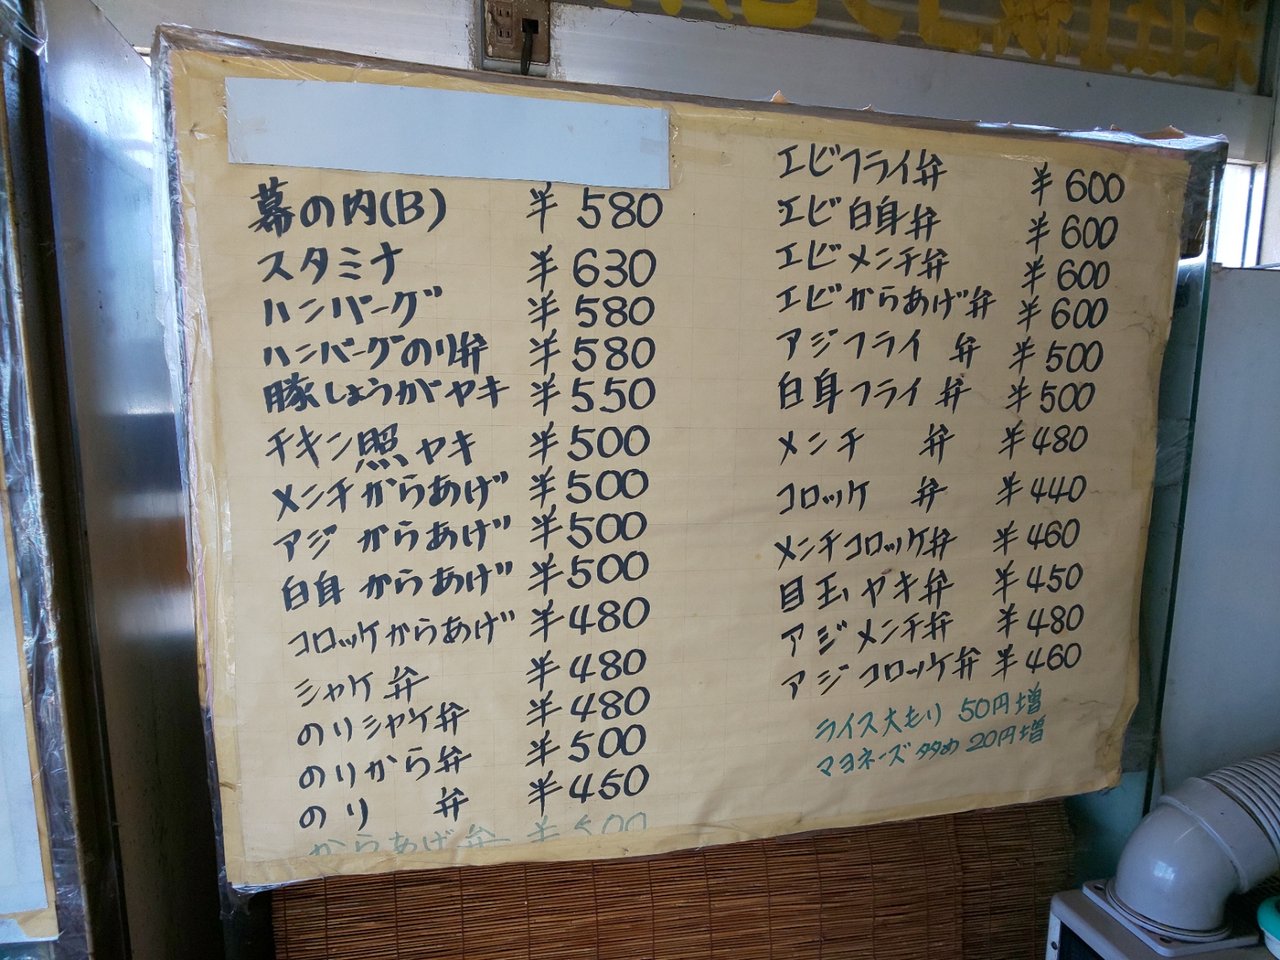 幕の内(B) ¥580
スタミナ ¥630
ハンバーグ ¥580
ハンバーグのり弁 ¥580
豚しょうがヤキ ¥550
チキン照ヤキ ¥500
メンチからあげ ¥500
アジからあげ ¥500
白身からあげ ¥500
コロッケからあげ ¥480
シャケ弁 ¥480
のりシャケ弁 ¥480
のりから弁 ¥500
のり 弁 ¥450
からあげ弁 ¥500
エビフライ弁 ¥600
エビ白身弁 ¥600
エビメンチ弁 ¥600
エビからあげ弁 ¥600
アジフライ 弁 ¥500
白身フライ 弁 ¥500
メンチ 弁 ¥480
コロッケ 弁 ¥440
メンチコロッケ弁 ¥460
目玉ヤキ弁 ¥450
アジメンチ弁 ¥480
アジコロッケ弁 ¥460
ライス大もり 50円増
マヨネーズ多め 20円増